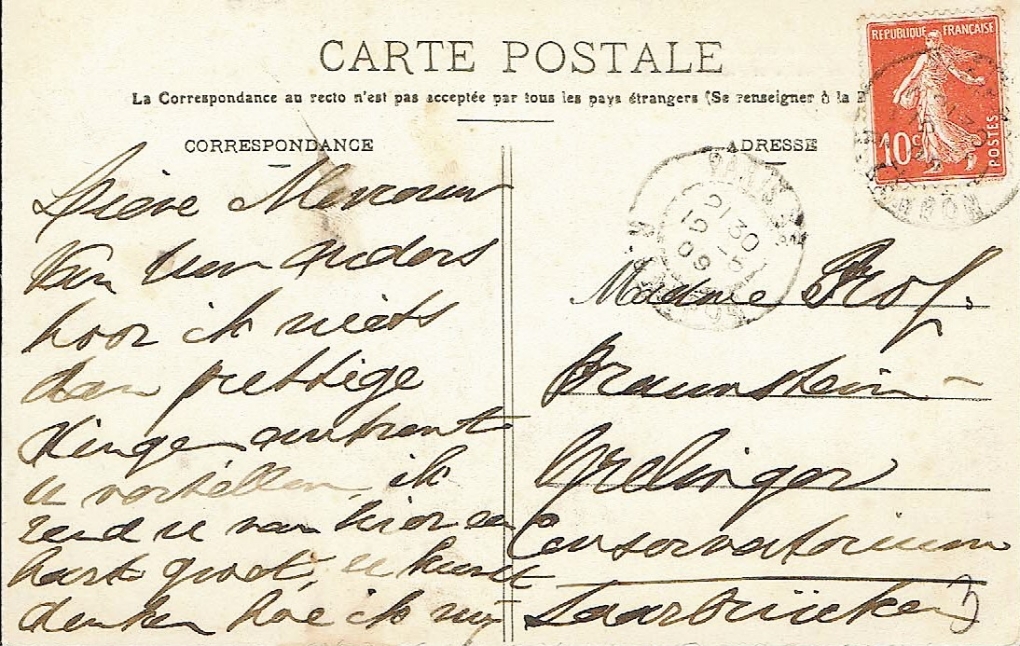 CARTE POSTALE
La Correspondance au recto n'est pas acceptée par tous les pays étrangers (Se renseigner à la
CORRESPONDANCE
ADRESSE
REPUBLIQUE FRANÇAISE
10c
POSTES
21 30
15 - 5
09
Lieve Mevrouw
Van
hoor ik niets
dan prettige
dingen omtrent
u vertellen, ik
zend u van hier een
harte groet, u kunt
denken hoe ik mij
Madame Prof.
Braunstein-
Grelinger
Conservatorium
Saarbrücken 3